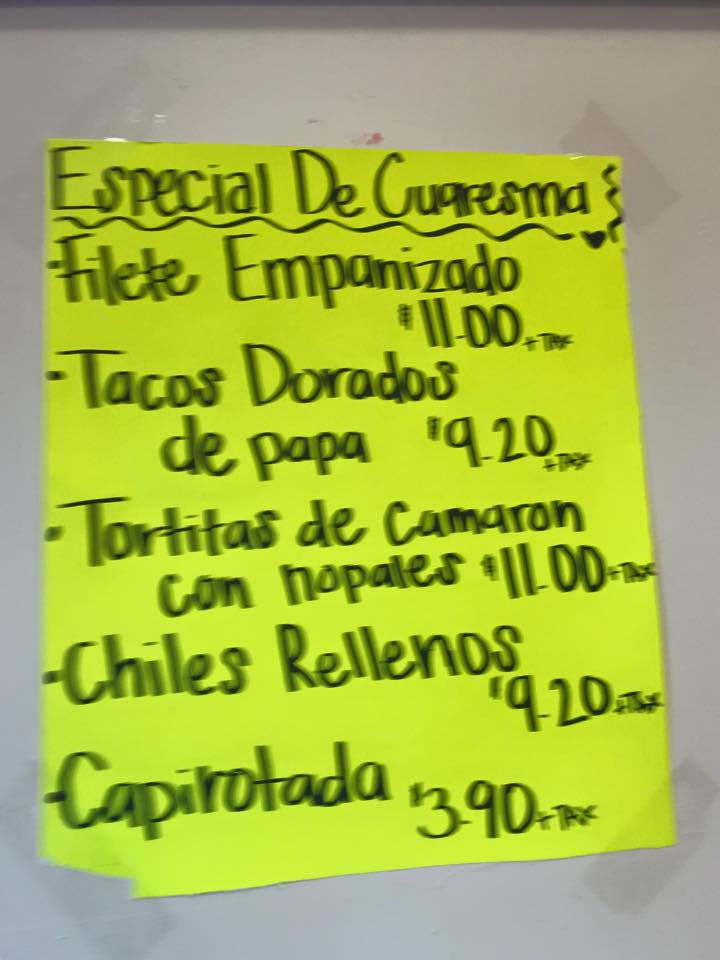 Especial De Cuaresma
·Filete Empanizado
$11.00 + TAX
·Tacos Dorados
de papa $9.20 + TAX
·Tortitas de camaron
con nopales $11.00 + TAX
-Chiles Rellenos
$9.20 + TAX
-Capirotada $3.90 + TAX